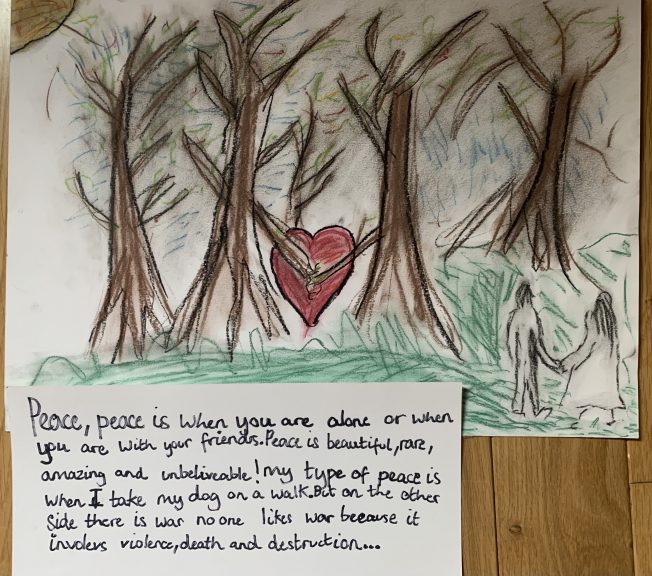 Peace, peace is when you are alone or when
you are with your friends.Peace is beautiful,rare,
amazing and unbeliveable! my type of peace is
when I take my dog on a walk.But on the other
side there is war no one likes war beecause it
involers violence,death and destruction...